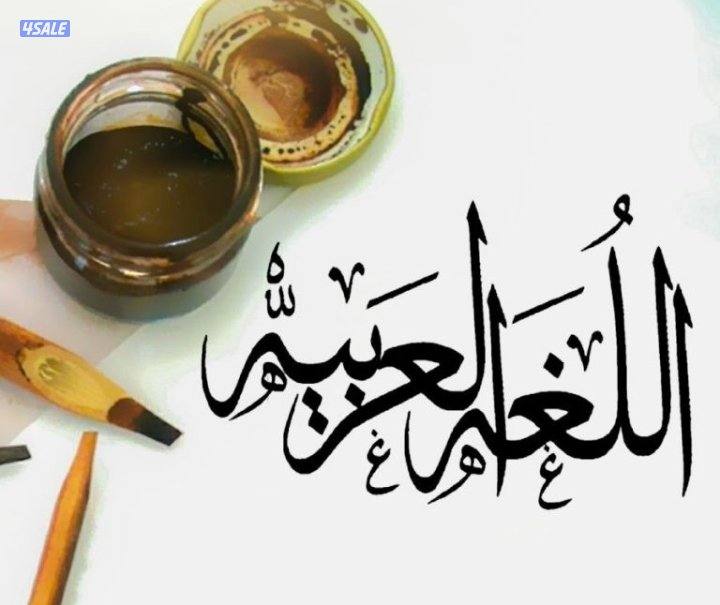 4SALE
اللُغَه العَربيّه